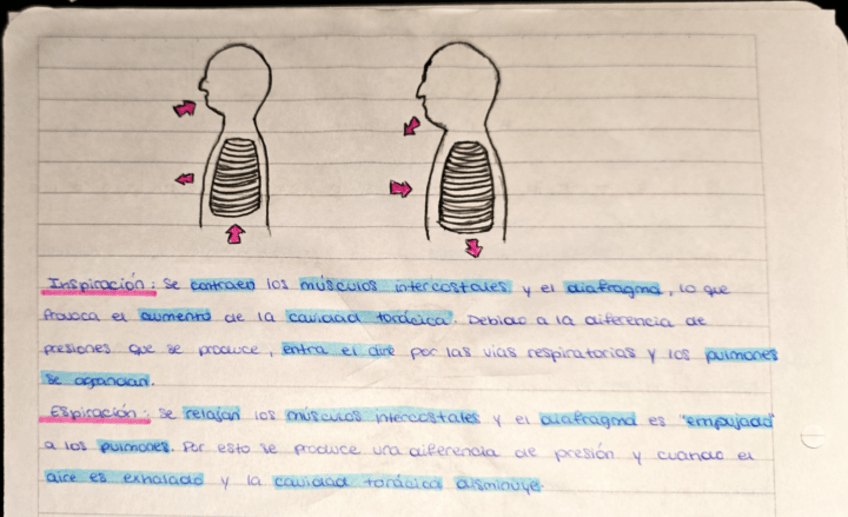 Inspiración: Se contraen los músculos intercostales y el diafragma, lo que
provoca el aumento de la cavidad torácica. Debido a la diferencia de
presiones que se produce, entra el aire por las vías respiratorias y los pulmones
se agrandan.
Espiración: Se relajan los músculos intercostales y el diafragma es "empujado"
a los pulmones. Por esto se produce una diferencia de presión y cuando el
aire es exhalado y la cavidad torácica disminuye.